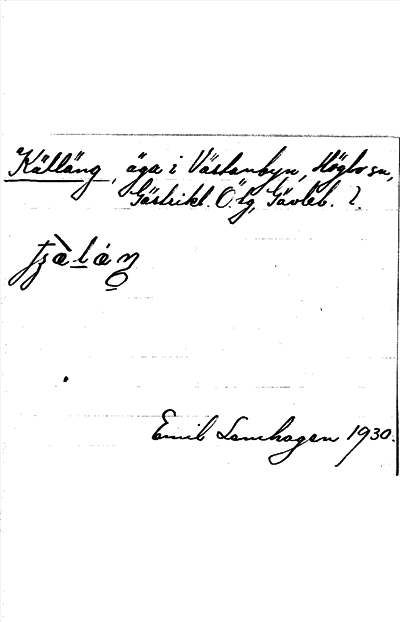 "Källäng, äga i Västanbyn, Högbo sn,
Gästrikl. Ö. tg, Gävleb. l.
Emil Lenhagen 1930.